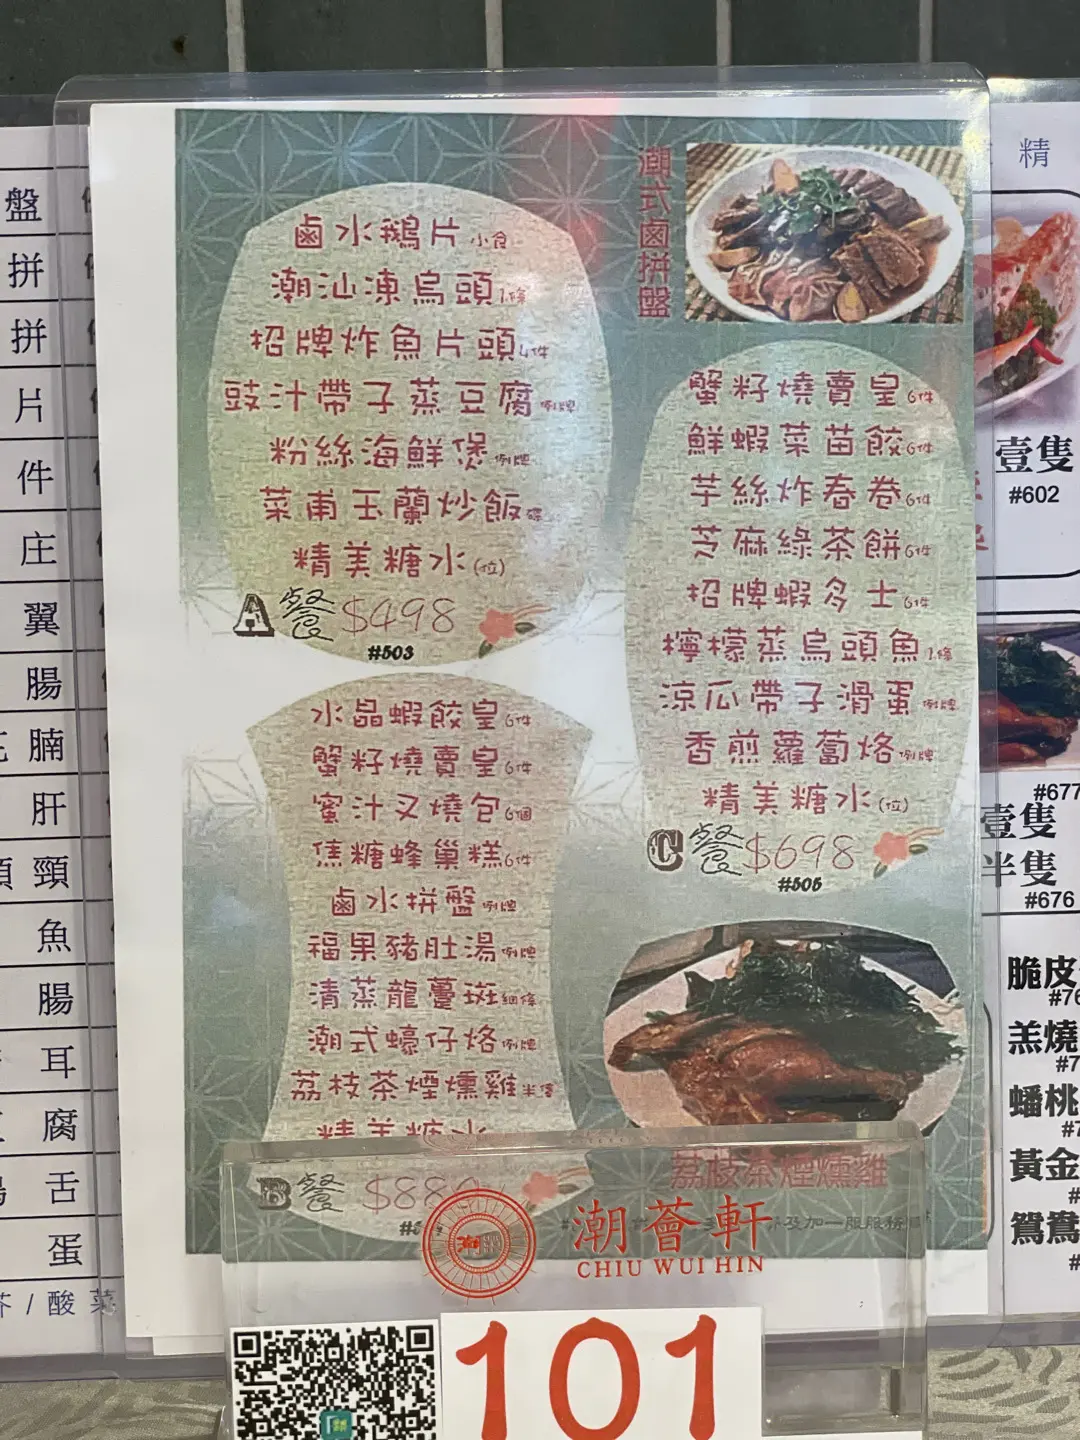 鹵水鵝片小食
潮汕凍烏頭1條
招牌炸魚片頭4件
豉汁帶子蒸豆腐例牌
粉絲海鮮煲例牌
菜甫玉蘭炒飯
精美糖水(位)
A餐$498
#503
水晶蝦餃皇6件
蟹籽燒賣皇6件
蜜汁叉燒包6個
焦糖蜂巢糕6件
鹵水拼盤例牌
福果豬肚湯例牌
清蒸龍躉斑
潮式蠔仔烙例牌
荔枝茶煙燻雞半隻
精美糖水
B餐
潮式鹵拼盤
蟹籽燒賣皇6件
鮮蝦菜苗餃6件
芋絲炸春卷6件
芝麻綠茶餅6件
招牌蝦多士6件
檸檬蒸烏頭魚1條
涼瓜帶子滑蛋例牌
香煎蘿蔔烙例牌
精美糖水(位)
C餐$698
#505
荔枝茶煙燻雞
及加一服服務
潮薈軒
CHIU WUI HIN
101
盤
拼
拼
片
件
庄
翼
腸
腩
肝
頸
魚
腸
耳
腐
舌
蛋
/酸菜
精
壹隻
#602
#677
壹隻
半隻
#676
脆皮
羔燒
蟠桃
黃金
鴛鴦